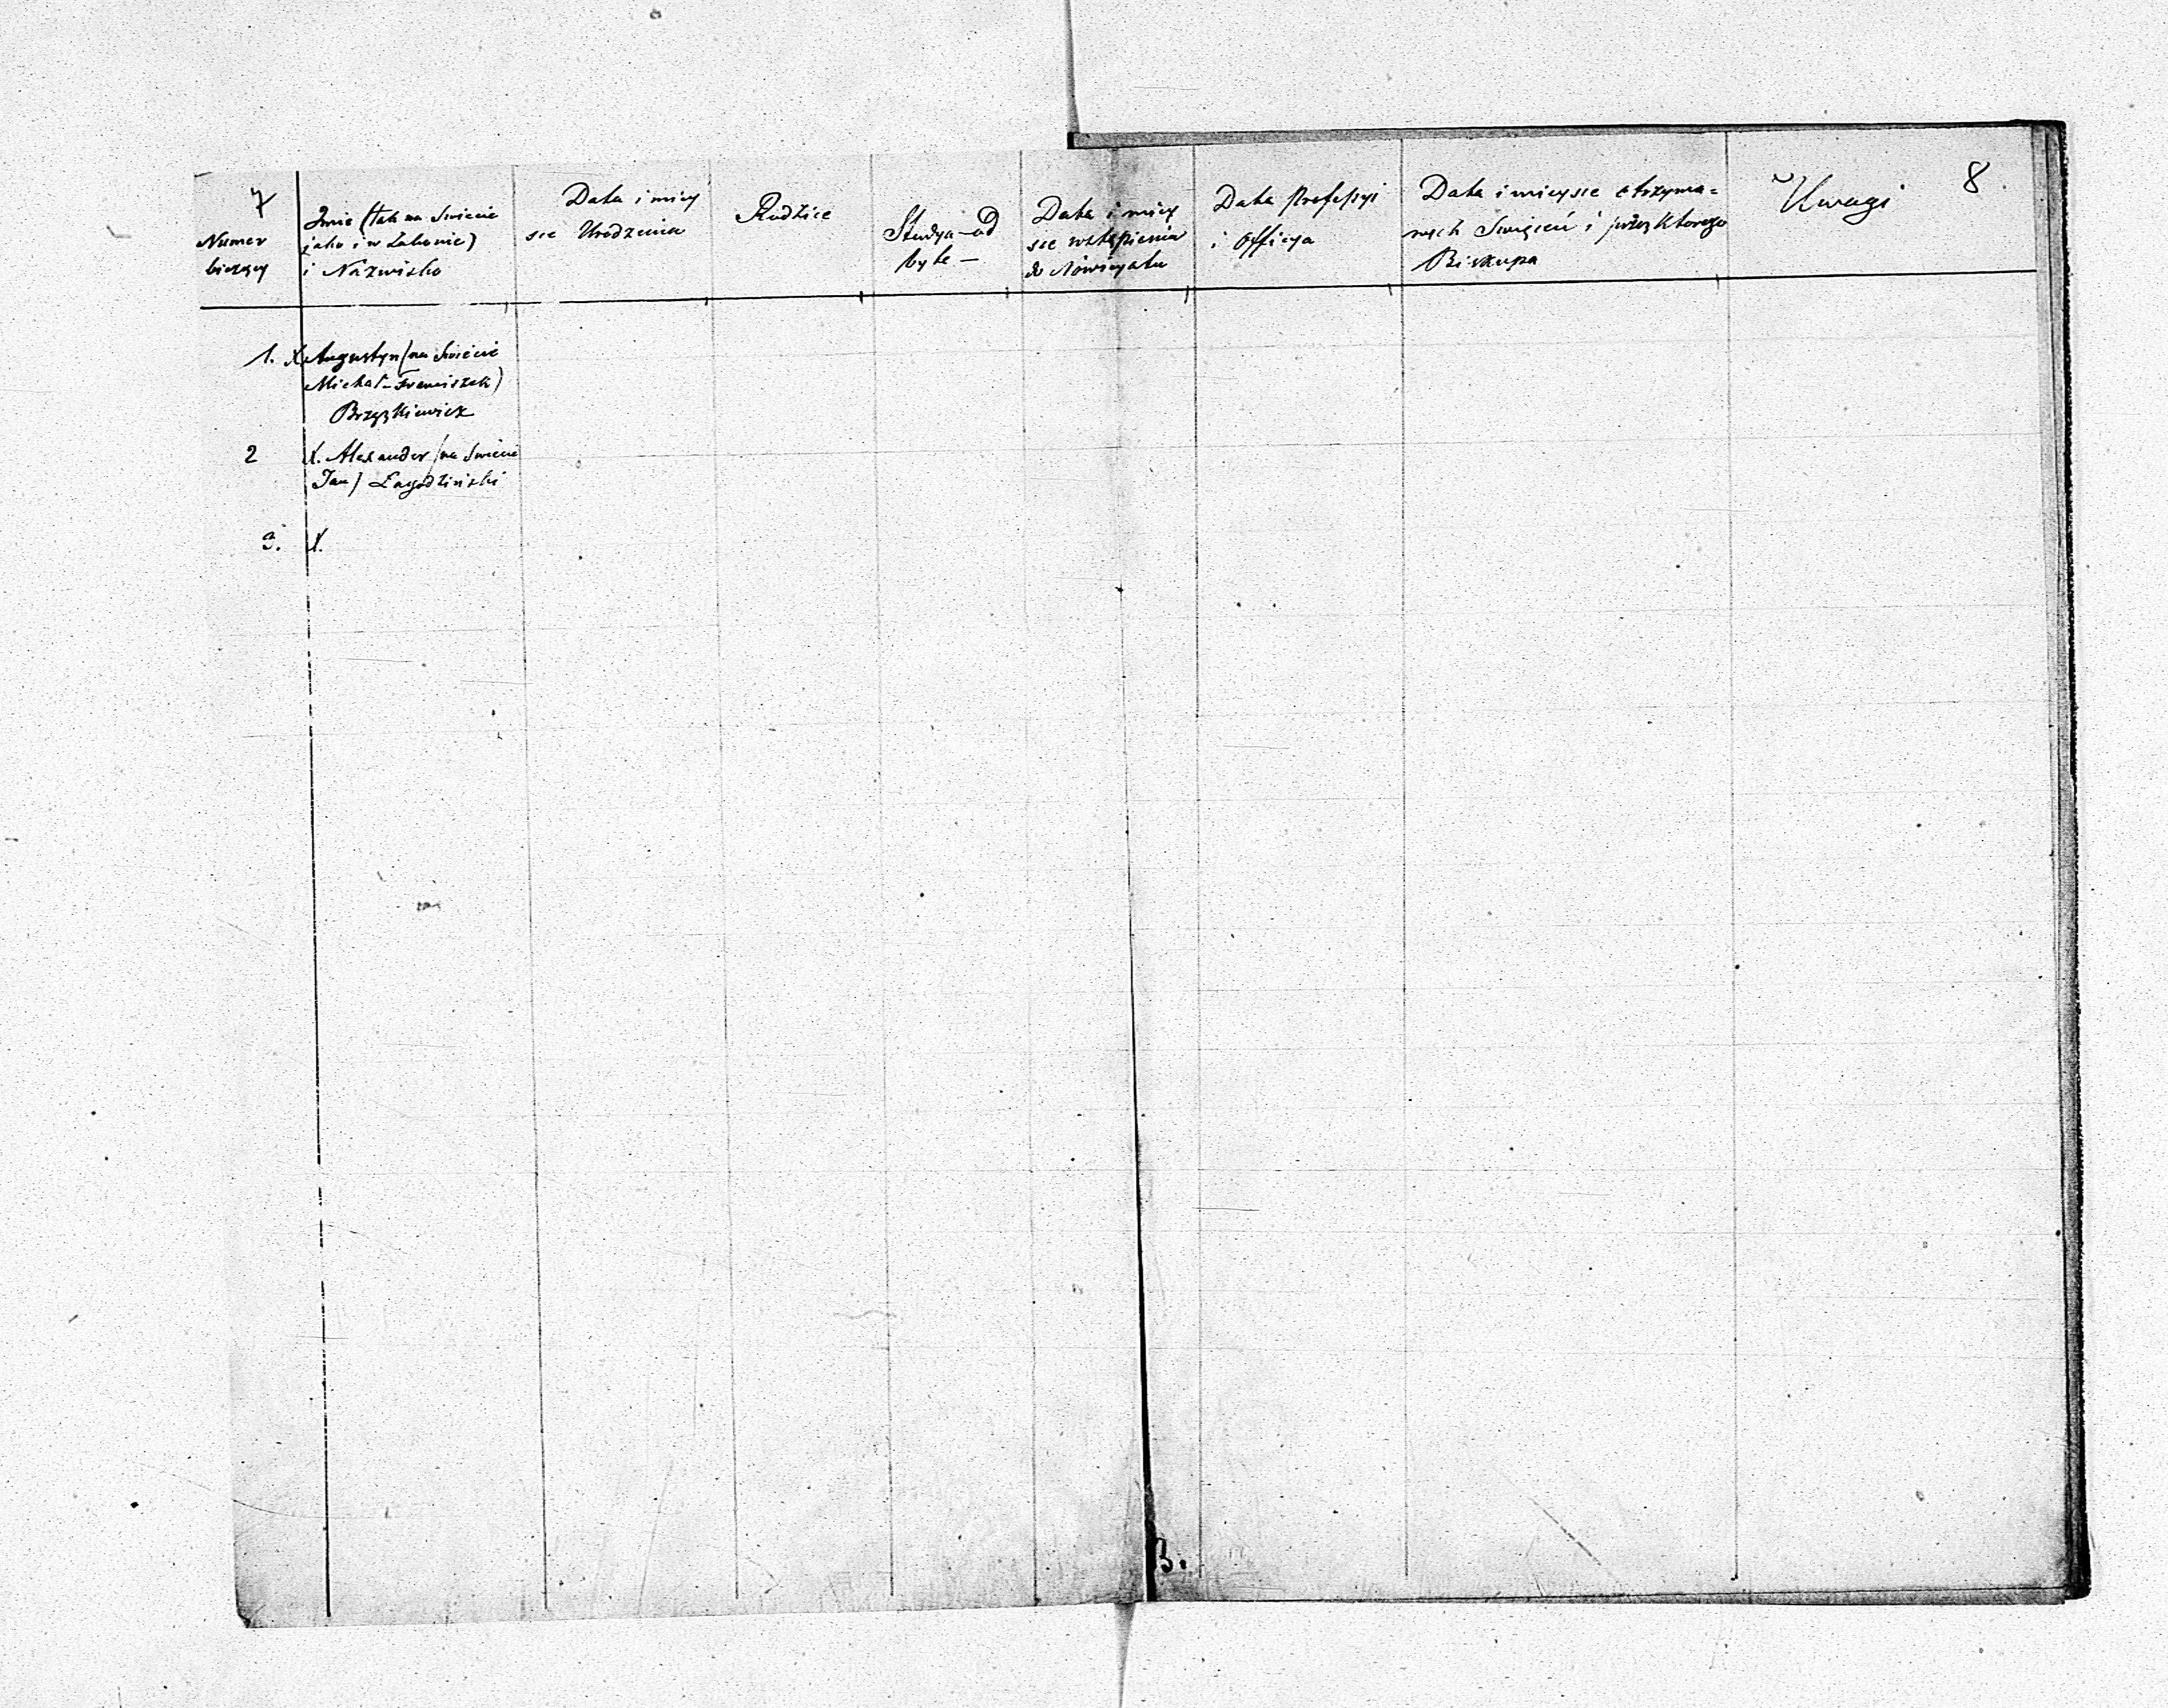 7
Numer
bieżący
Imie (tak na Swiecie
jako i w Zakonie)
i Nazwisko
Data i miey
sce Urodzenia
Rodzice
Studya od
byte —
Data i miey
sce wstąpienia
do Nowicyatu
Data Professyi
i officya
Data i mieysce otrzyma=
nych Swięceń i przez którego
Biskupa
Uwagi
8
1. X Augustyn (na Swiecie
Michał-Franciszek)
2 X. Alexander (na Swiecie
Jan) Łagodziński
3. X.
3.